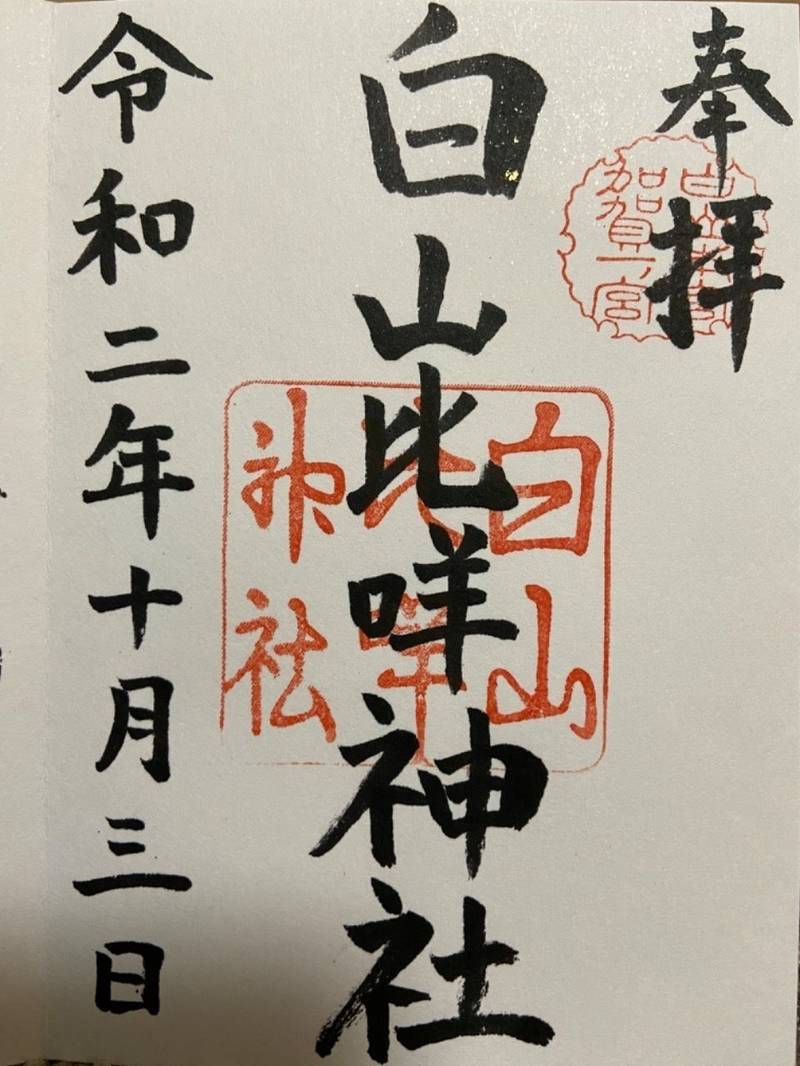 奉拝
加賀一宮
白山比咩神社
白山
比咩
神社
令和二年十月三日